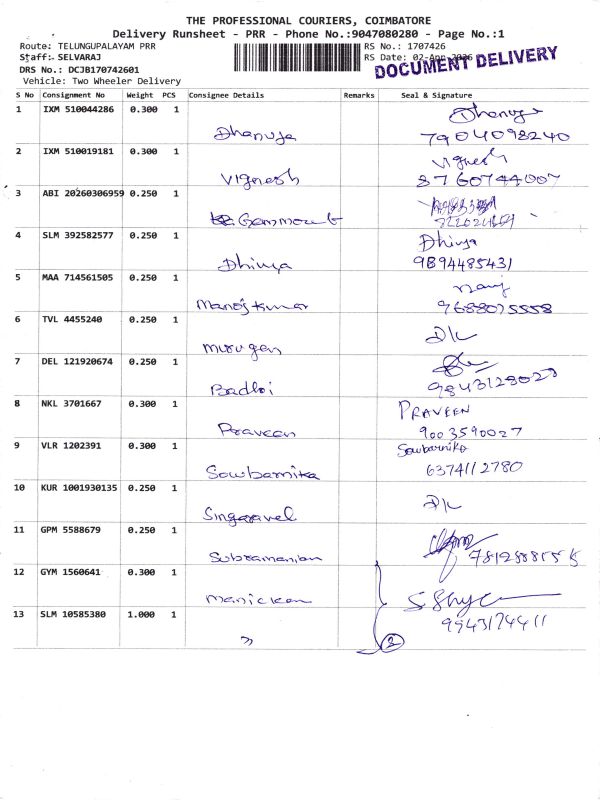 THE PROFESSIONAL COURIERS, COIMBATORE
Delivery Runsheet - PRR - Phone No.:9047080280 - Page No.:1
Route: TELUNGUPALAYAM PRR RS No.: 1707426
Staff: SELVARAJ RS Date: 02-Apr-2026
DOCUMENT DELIVERY
DRS No.: DCJB170742601
Vehicle: Two Wheeler Delivery
S No Consignment No Weight PCS Consignee Details Remarks Seal & Signature
1 IXM 510044286 0.300 1 Dhanuja Dhanuja
7904098240
2 IXM 510019181 0.300 1 Vignesh Vignesh
8760744007
3 ABI 20260306959 0.250 1
4 SLM 392582577 0.250 1 Dhivya Dhivya
9894485431
5 MAA 714561505 0.250 1 Manojkumar
9688075558
6 TVL 4455240 0.250 1 Murugan D/L
7 DEL 121920674 0.250 1 Badhri
8 NKL 3701667 0.300 1 Praveen PRAVEEN
9003590027
9 VLR 1202391 0.300 1 Sowbarnika Sowbarnika
6374112780
10 KUR 1001930135 0.250 1 Singaravel D/L
11 GPM 5588679 0.250 1 Subramanian
12 GYM 1560641 0.300 1 Manickam
13 SLM 10585380 1.000 1 "
9943174411
2